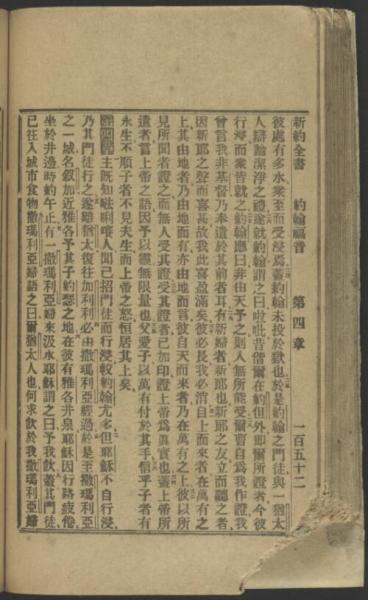 新約全書 約翰福音 第四章 一百五十二
彼處有多水衆至而受浸焉蓋約翰未投於獄也於是約翰之門徒與一猶太
人辯論潔淨之禮遂就約翰謂之曰啦吡昔偕爾在約但外即爾所證者今彼
行浸而衆皆就之約翰應曰非由天予之則人無所能受爾曹自爲我作證我
曾言我非基督乃奉遣於其前者耳有新婦者新郎也新郎之友立而聽之者
因新郎之聲而喜甚故我此喜盈滿矣彼必長我必消自上而來者在萬有之
上其由地者乃由地而有亦由地而言彼自天而來者乃在萬有之上彼以所
見所聞者證之而無人受其證受其證者已加印證上帝爲眞實也蓋上帝所
遣者言上帝之語因予以靈無限量也父愛子以萬有付於其手信乎子者有
永生不順子者不見夫生而上帝之怒恒居其上矣
第四章主既知𠵽唎㘔人聞己招門徒而行浸較約翰尤多但耶穌不自行浸
乃其門徒行之遂離猶太復往加利利必由撒瑪利亞經過於是至撒瑪利亞
之一城名叙加近雅各予其子約瑟之地在彼有雅各井泉耶穌因行路疲倦
坐於井邊時約午正有一撒瑪利亞婦來汲水耶穌謂之曰予我飲蓋其門徒
已往入城市食物撒瑪利亞婦語之曰爾猶太人也何求飲於我撒瑪利亞婦